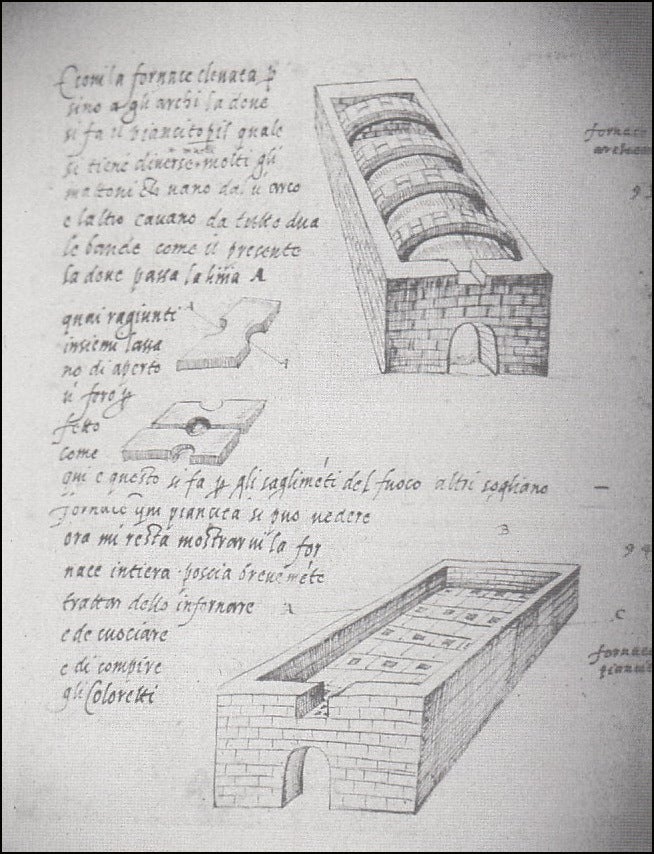 Ecovi la fornace elevata p
sino a gli archi la dove
si fa il pianeito pil quale
si tiene diverse molti gli
mattoni che vano dal ú arco
e laltro cavano da tutto dua
le bande come il presente
la dove passa la linia A
quai ragiunti
insiemi lassa
no di aperto
ú foro p
fetto
come
qui e questo si fa p gli saglimēti del fuoco altri sogliano
fornace pianata si puo vedere
ora mi resta mostrarvi la for
nace intiera poscia brevemēte
trattar dello infornare
e de cuociare
e di compire
gli Coloretti
fornace
A
A
93
B
94
C
fornace